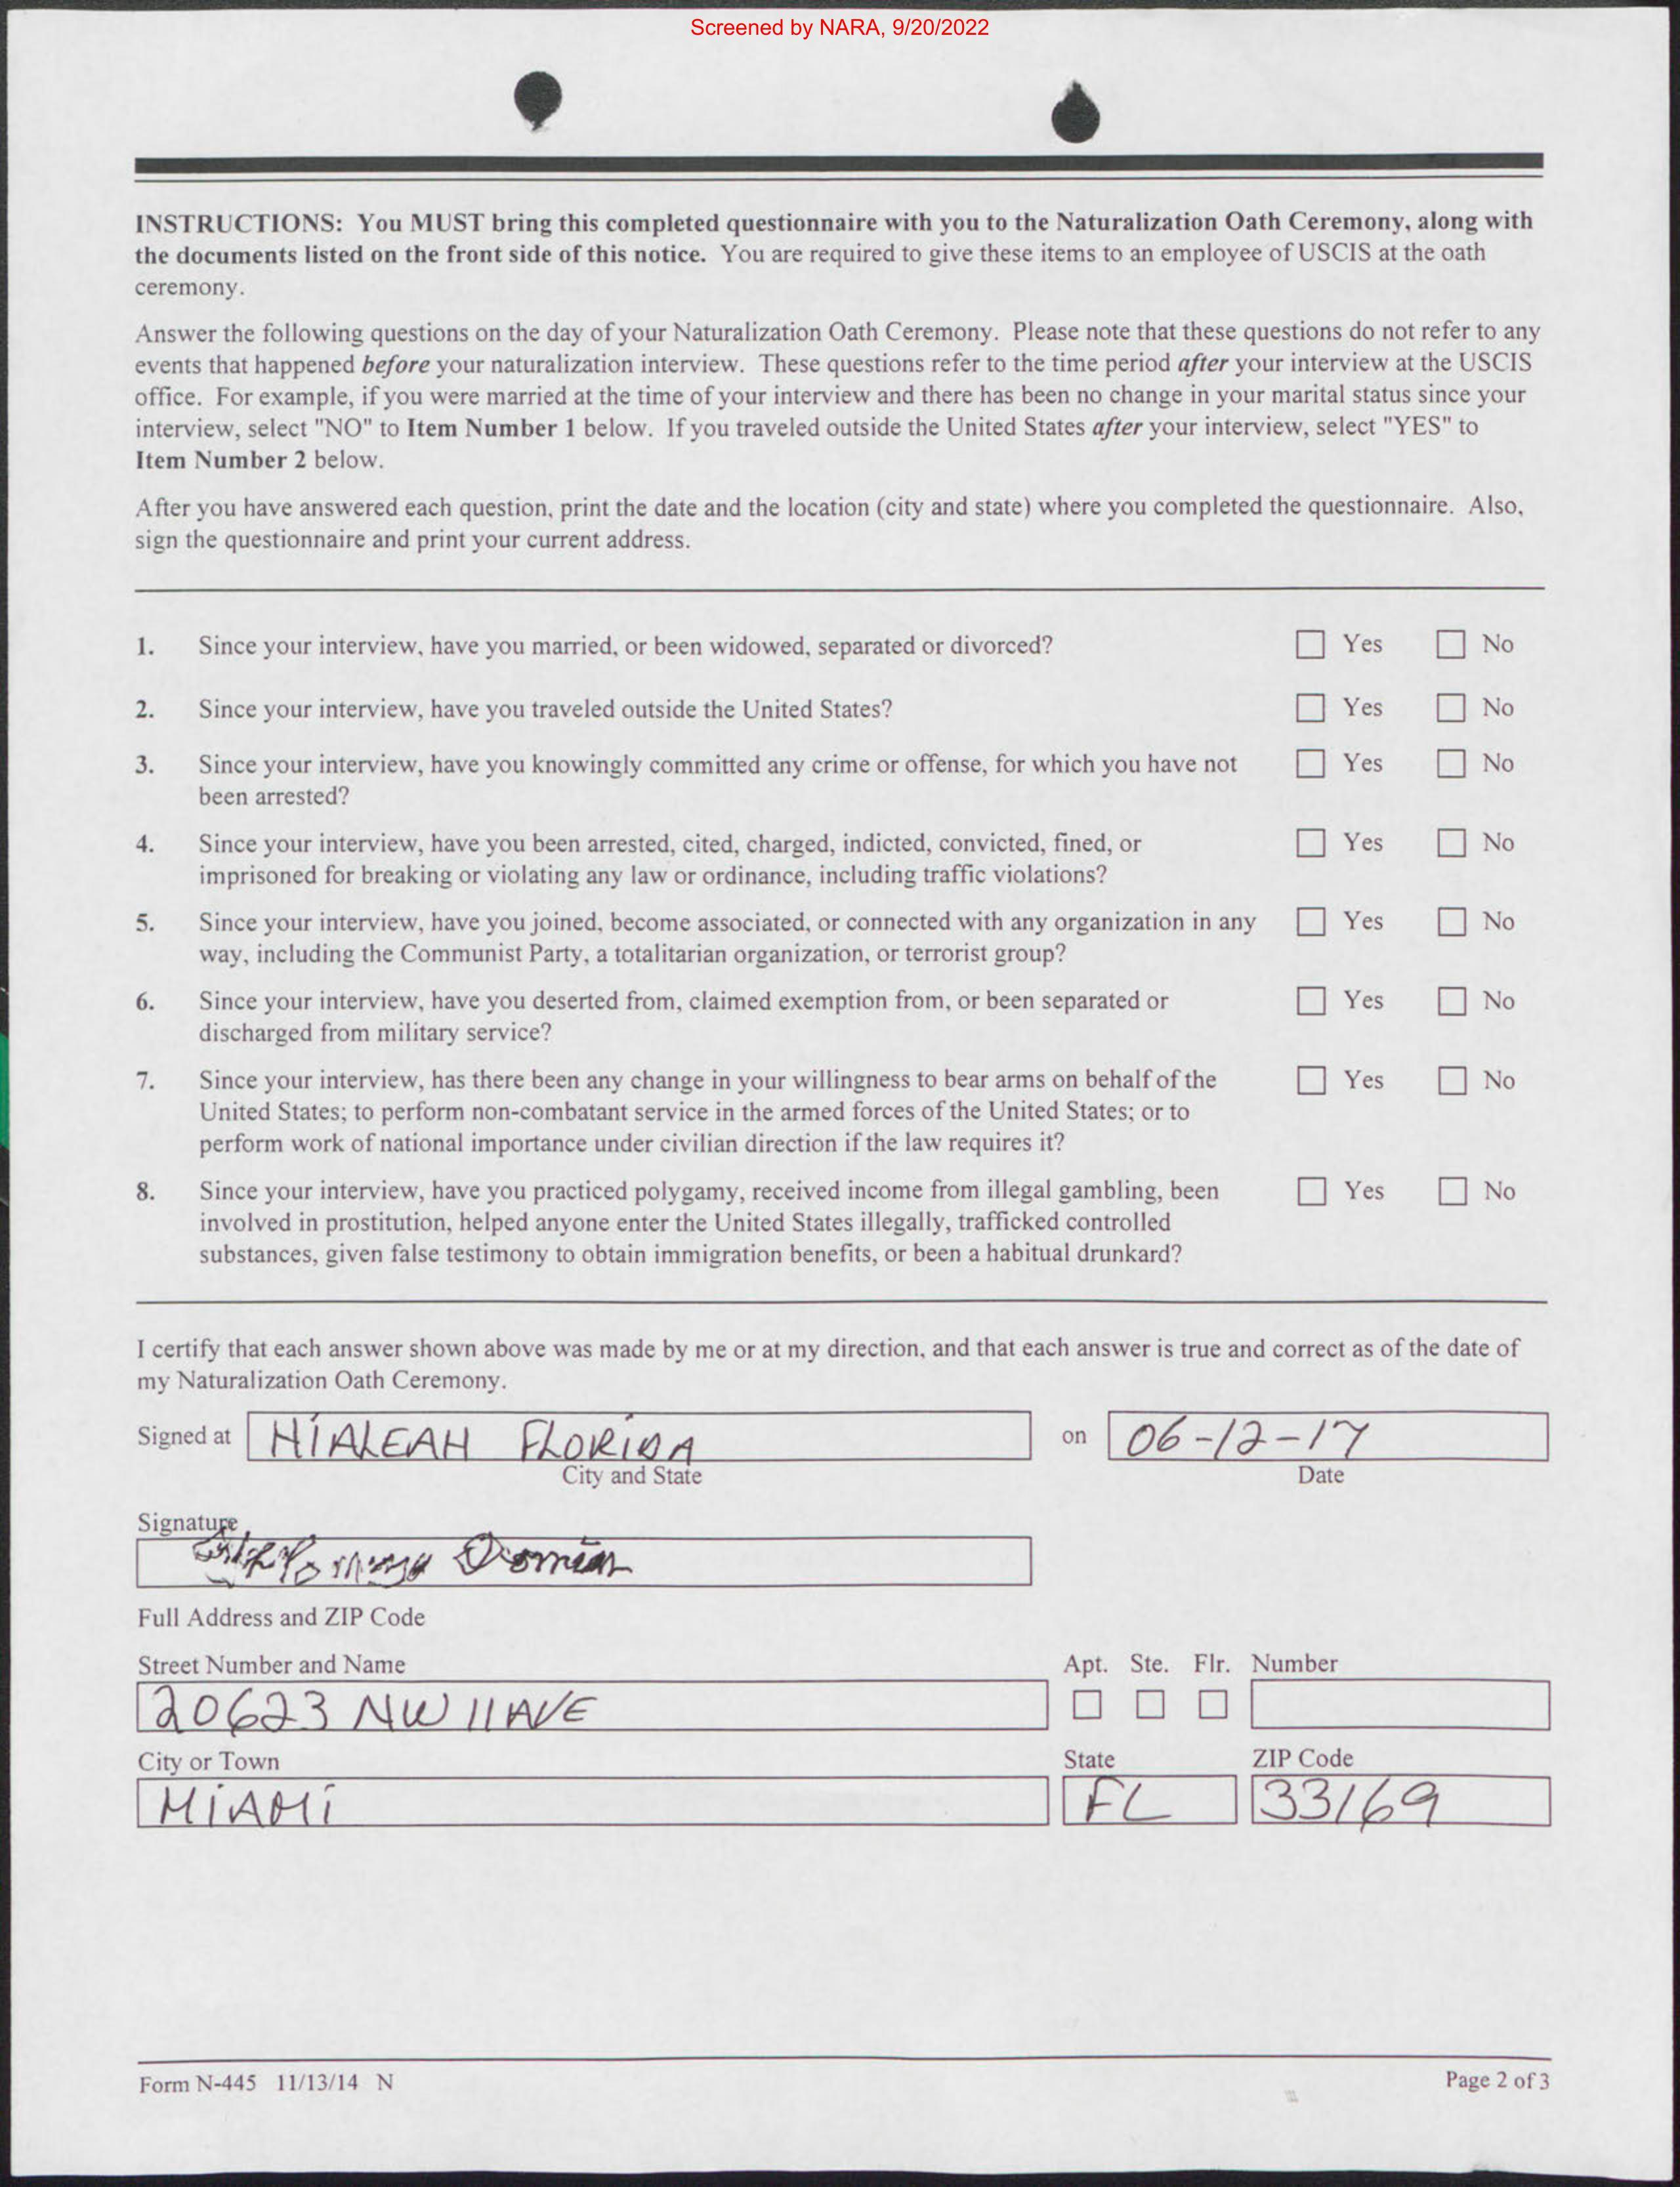 Screened by NARA, 9/20/2022
INSTRUCTIONS: You MUST bring this completed questionnaire with you to the Naturalization Oath Ceremony, along with
the documents listed on the front side of this notice. You are required to give these items to an employee of USCIS at the oath
ceremony.
Answer the following questions on the day of your Naturalization Oath Ceremony. Please note that these questions do not refer to any
events that happened before your naturalization interview. These questions refer to the time period after your interview at the USCIS
office. For example, if you were married at the time of your interview and there has been no change in your marital status since your
interview, select "NO" to Item Number 1 below. If you traveled outside the United States after your interview, select "YES" to
Item Number 2 below.
After you have answered each question, print the date and the location (city and state) where you completed the questionnaire. Also,
sign the questionnaire and print your current address.
1. Since your interview, have you married, or been widowed, separated or divorced? Yes No
2. Since your interview, have you traveled outside the United States? Yes No
3. Since your interview, have you knowingly committed any crime or offense, for which you have not Yes No
been arrested?
4. Since your interview, have you been arrested, cited, charged, indicted, convicted, fined, or Yes No
imprisoned for breaking or violating any law or ordinance, including traffic violations?
5. Since your interview, have you joined, become associated, or connected with any organization in any Yes No
way, including the Communist Party, a totalitarian organization, or terrorist group?
6. Since your interview, have you deserted from, claimed exemption from, or been separated or Yes No
discharged from military service?
7. Since your interview, has there been any change in your willingness to bear arms on behalf of the Yes No
United States; to perform non-combatant service in the armed forces of the United States; or to
perform work of national importance under civilian direction if the law requires it?
8. Since your interview, have you practiced polygamy, received income from illegal gambling, been Yes No
involved in prostitution, helped anyone enter the United States illegally, trafficked controlled
substances, given false testimony to obtain immigration benefits, or been a habitual drunkard?
I certify that each answer shown above was made by me or at my direction, and that each answer is true and correct as of the date of
my Naturalization Oath Ceremony.
Signed at HIALEAH FLORIDA on 06-12-17
City and State Date
Signature
Full Address and ZIP Code
Street Number and Name Apt. Ste. Flr. Number
20623 NW 11 AVE
City or Town State ZIP Code
MIAMI FL 33169
Form N-445 11/13/14 N Page 2 of 3